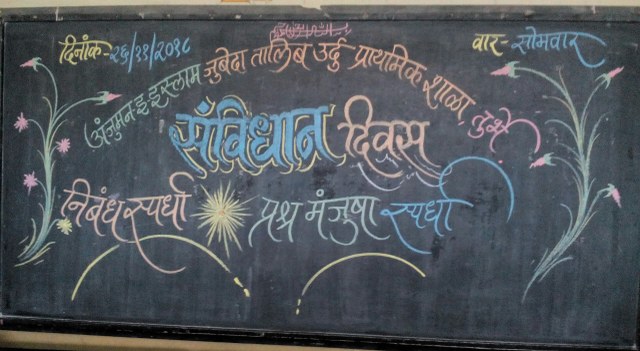 दिनांक-२६/११/२०१८
वार-सोमवार
अंजुमन इ इस्लाम जुबेदा तालिब उर्दु प्राथमिक शाळा,
संविधान दिवस
निबंध स्पर्धा
प्रश्न मंजुषा स्पर्धा